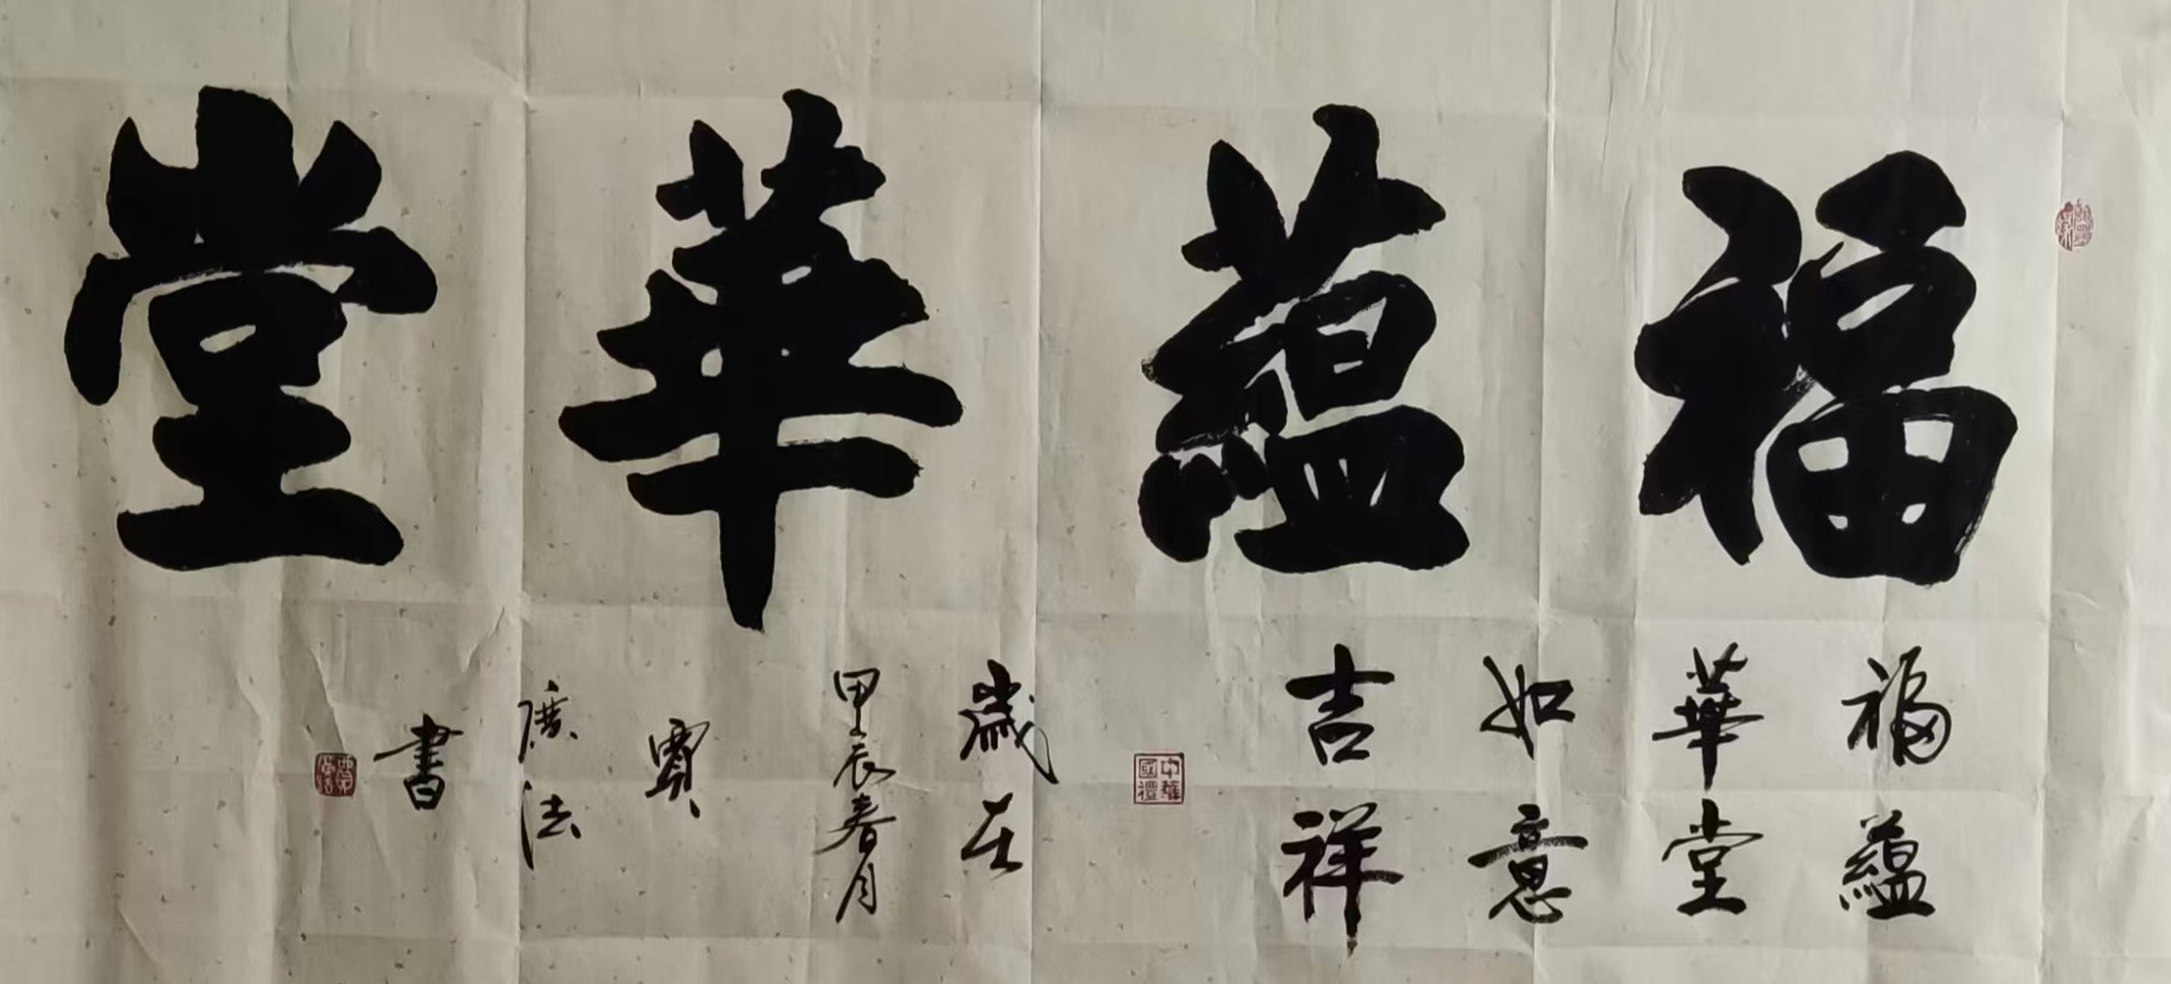 福蘊華堂
福蘊
華堂
如意
吉祥
歲在
甲辰春月
賈
廣法
書
中華
國禮